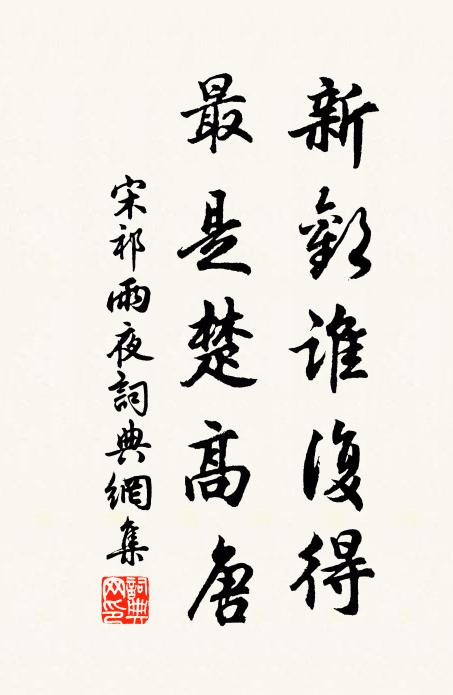 新歡誰復得
最是楚高唐
宋祁雨夜詞典網集
詞典網印